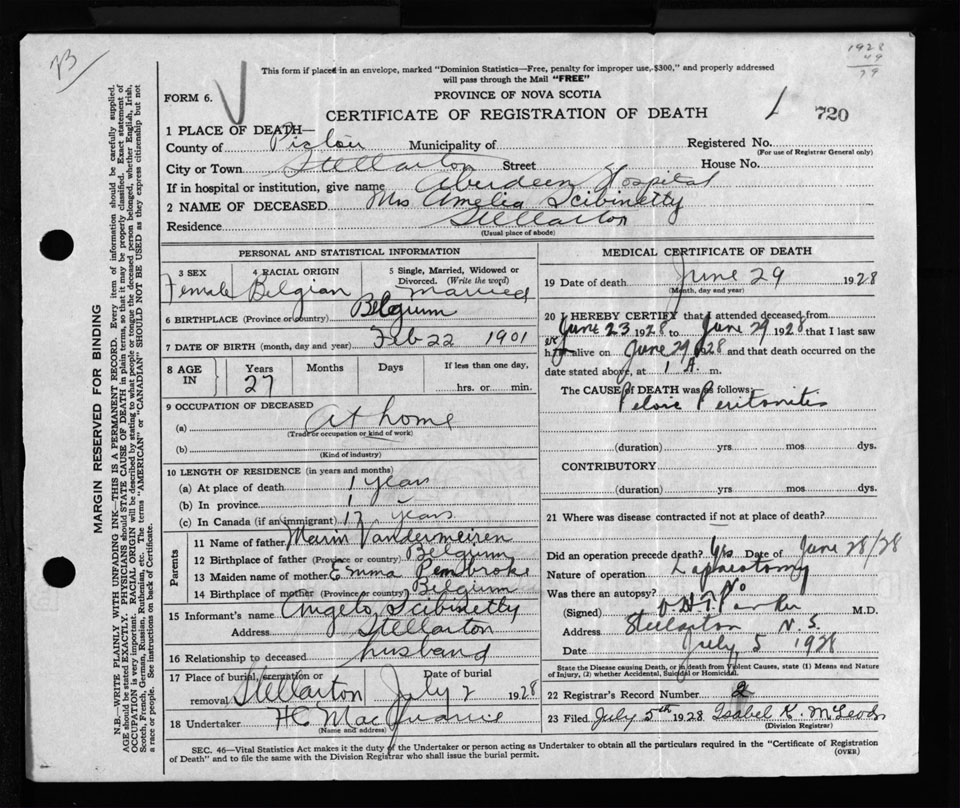 1928
49
79
This form if placed in an envelope, marked "Dominion Statistics—Free, penalty for improper use, $300," and properly addressed
will pass through the Mail "FREE"
FORM 6.
PROVINCE OF NOVA SCOTIA
CERTIFICATE OF REGISTRATION OF DEATH
720
1 PLACE OF DEATH—
County of Pictou Municipality of Registered No.
(For use of Registrar General only)
City or Town Stellarton Street House No.
If in hospital or institution, give name Aberdeen Hospital
2 NAME OF DECEASED Mrs Amelia Scibinetty
Residence Stellarton
(Usual place of abode)
PERSONAL AND STATISTICAL INFORMATION
3 SEX Female
4 RACIAL ORIGIN Belgian
5 Single, Married, Widowed or Divorced. (Write the word) married
6 BIRTHPLACE (Province or country) Belgium
7 DATE OF BIRTH (month, day and year) Feb 22 1901
8 AGE IN Years 27 Months Days If less than one day, hrs. or min.
9 OCCUPATION OF DECEASED
(a) At home
(Trade or occupation or kind of work)
(b)
(Kind of industry)
10 LENGTH OF RESIDENCE (in years and months)
(a) At place of death 1 year
(b) In province 1 "
(c) In Canada (if an immigrant) 17 years
Parents
11 Name of father Marin Vandermeiren
12 Birthplace of father (Province or country) Belgium
13 Maiden name of mother Emma Pembroke
14 Birthplace of mother (Province or country) Belgium
15 Informant's name Angelo Scibinetty
Address Stellarton
16 Relationship to deceased husband
17 Place of burial, cremation or removal Stellarton Date of burial July 2 1928
18 Undertaker H C MacQuarrie
(Name and address)
MEDICAL CERTIFICATE OF DEATH
19 Date of death June 29 1928
(Month, day and year)
20 I HEREBY CERTIFY that I attended deceased from
June 23 1928 to June 29 1928 that I last saw
her alive on June 29 1928 and that death occurred on the
date stated above, at 1 A. m.
The CAUSE of DEATH was as follows:
Pelvic Peritonitis
(duration) yrs mos dys.
CONTRIBUTORY
(duration) yrs mos dys.
21 Where was disease contracted if not at place of death?
Did an operation precede death? Yes Date of June 28/28
Nature of operation Laparotomy
Was there an autopsy? No
(Signed) Parker M.D.
Address Stellarton N.S.
Date July 5 1928
State the Disease causing Death, or in death from Violent Causes, state (1) Means and Nature
of Injury, (2) whether Accidental, Suicidal or Homicidal.
22 Registrar's Record Number 2
23 Filed July 5th 1928 Isabel K. McLeod
(Division Registrar)
SEC. 46—Vital Statistics Act makes it the duty of the Undertaker or person acting as Undertaker to obtain all the particulars required in the "Certificate of Registration
of Death" and to file the same with the Division Registrar who shall issue the burial permit.
(OVER)
MARGIN RESERVED FOR BINDING
N.B.—WRITE PLAINLY WITH UNFADING INK—THIS IS A PERMANENT RECORD. Every item of information should be carefully supplied.
AGE should be stated EXACTLY. PHYSICIANS should STATE CAUSE OF DEATH in plain terms, so that it may be properly classified. Exact statement of
OCCUPATION is very important. RACIAL ORIGIN will be described by stating to what people or tongue the deceased person belonged, whether English, Irish,
Scotch, French, German, Russian, Ruthenian, etc. The terms "AMERICAN" or "CANADIAN" SHOULD NOT BE USED as they express citizenship but not
a race or people. See instructions on back of Certificate.